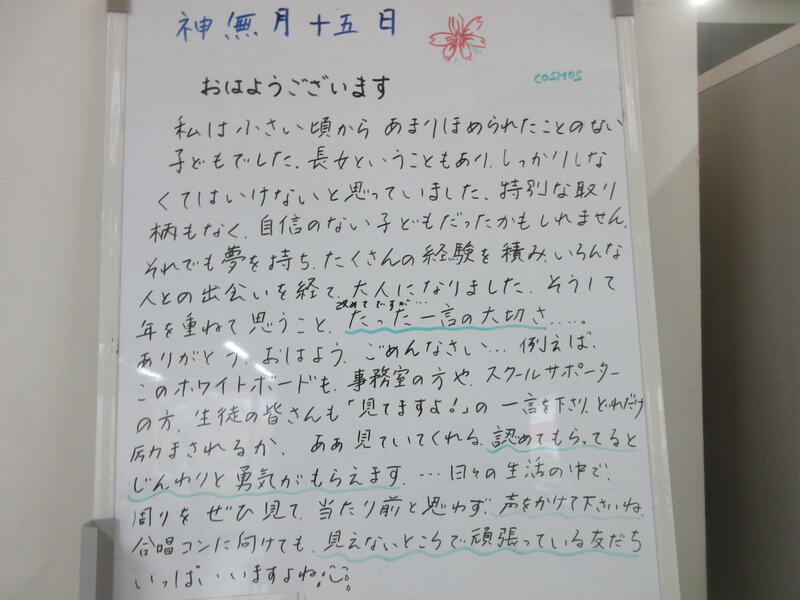 神無月十五日
COSMOS
おはようございます
私は小さい頃から あまりほめられたことのない
子どもでした。長女ということもあり、しっかりしな
くてはいけないと思っていました。特別な取り
柄もなく、自信のない子どもだったかもしれません。
それでも夢を持ち、たくさんの経験を積み、いろんな
人との出会いを経て、大人になりました。そうして
改めてですが…
年を重ねて思うこと、たった一言の大切さ……。
ありがとう、おはよう、ごめんなさい… 例えば、
このホワイトボードも、事務室の方や、スクールサポーター
の方、生徒の皆さんも「見てますよ!」の一言を下さり、どれだけ
励まされるか、 ああ見ていてくれる、認めてもらってると
じんわりと勇気がもらえます。…日々の生活の中で、
周りをぜひ見て、当たり前と思わず、声をかけて下さいね。
合唱コンに向けても、見えないところで頑張っている友だち
いっぱいいますよね!